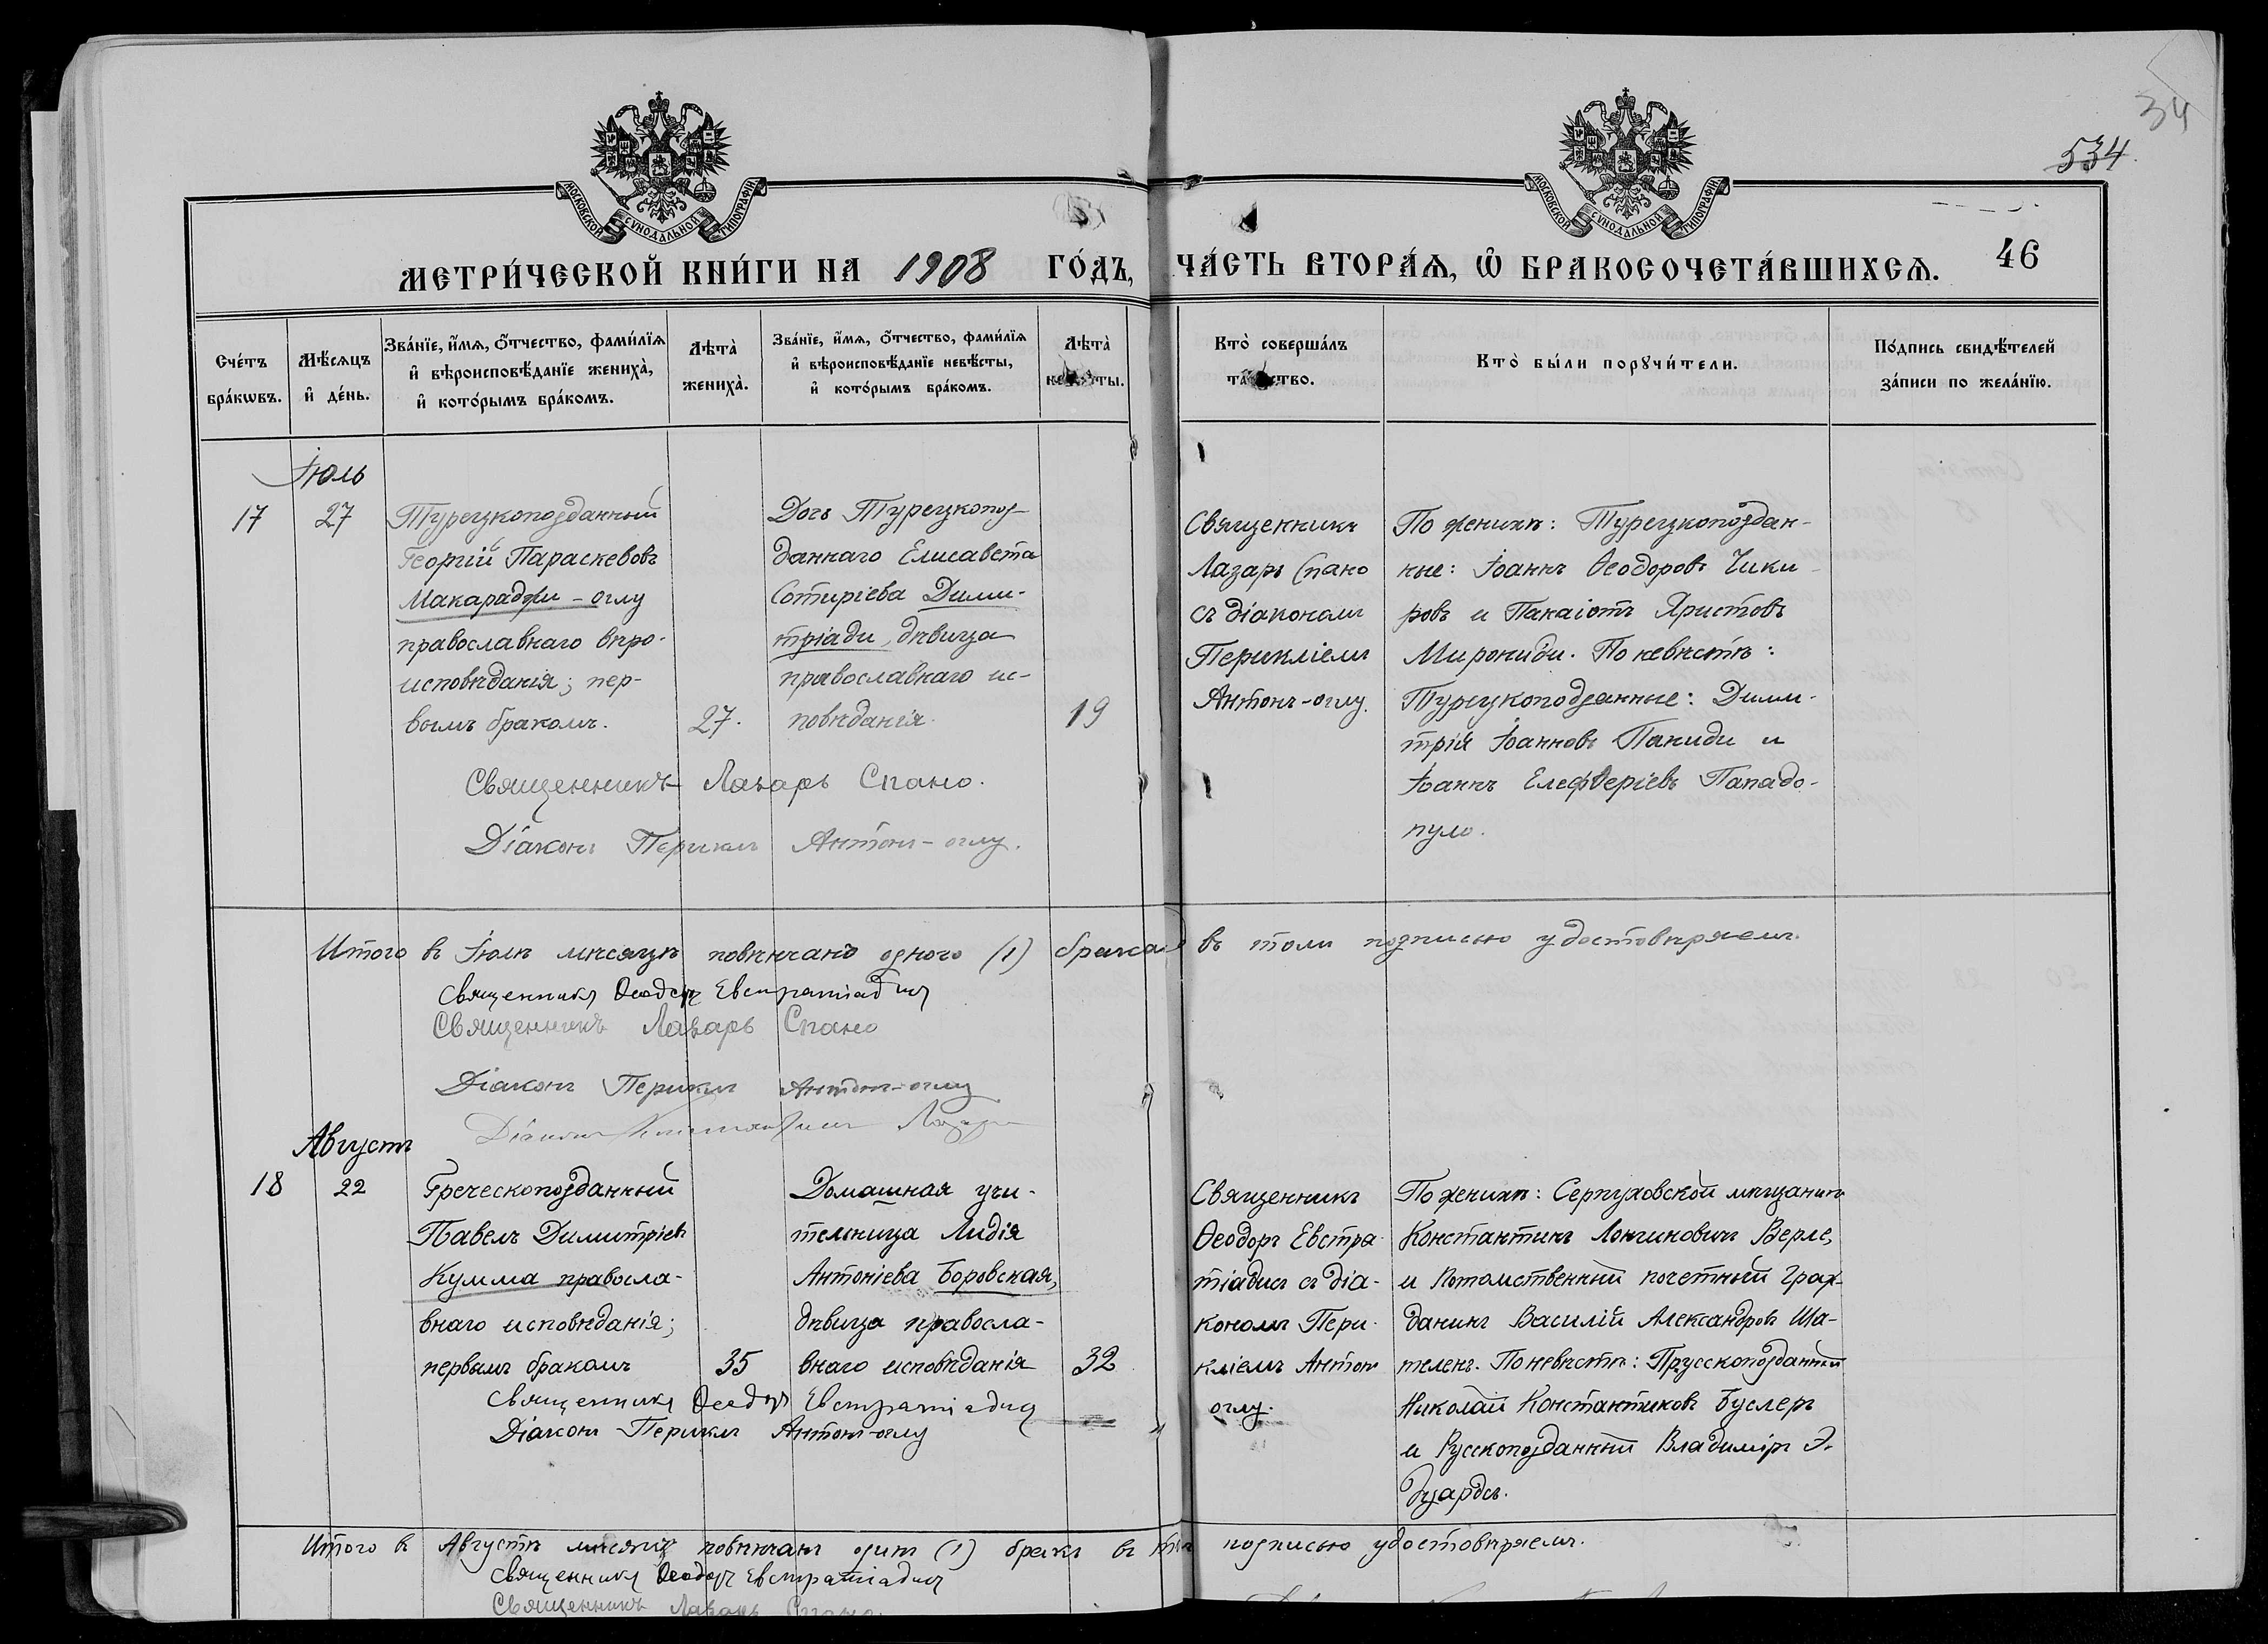 34
534.
МОСКОВСКОЙ СѴНОДАЛЬНОЙ ТИПОГРАФІИ
МОСКОВСКОЙ СѴНОДАЛЬНОЙ ТИПОГРАФІИ
МЕТРИ́ЧЕСКОЙ КНИ́ГИ НА 1908 ГО́ДЪ, ЧА́СТЬ ВТОРА́Ѧ, Ѡ҆ БРАКОСОЧЕТА́ВШИХСѦ. 46
Сче́тъ
бра́кѡвъ.
Мѣ́сѧцъ
и҆ де́нь.
Зва́нїе, и҆́мѧ, о҆́тчество, фами́лїѧ
и҆ вѣроисповѣ́данїе жениха̀,
и҆ кото́рымъ бра́комъ.
Лѣта̀
жениха̀.
Зва́нїе, и҆́мѧ, о҆́тчество, фами́лїѧ
и҆ вѣроисповѣ́данїе невѣ́сты,
и҆ кото́рымъ бра́комъ.
Лѣта̀
невѣ́сты.
Кто̀ соверша́лъ
та́инство.
Кто̀ бы́ли порꙋчи́тели.
По́дпись свидѣ́телей
за́писи по жела́нїю.
Іюль
17
27
Турецкоподданный
Георгій Параскевовъ
Макараджи-оглу
православнаго вѣро-
исповѣданія; пер-
вымъ бракомъ.
27.
Дочь Турецкопод-
даннаго Елисавета
Сотиріева Дими-
тріади, дѣвица
православнаго ис-
повѣданія.
19
Священникъ
Лазарь Спано
съ діакономъ
Перикліемъ
Антонъ-оглу.
По женихѣ: Турецкоподдан-
ные: Іоаннъ Ѳеодоровъ Чики-
ровъ и Панаіотъ Христовъ
Мирониди. По невѣстѣ:
Турецкоподданные: Дими-
трій Іоанновъ Паниди и
Іоаннъ Елефѳеріевъ Пападо-
пуло.
Священникъ Лазарь Спано.
Діаконъ Периклъ Антонъ-оглу.
Итого въ Іюлѣ мѣсяцѣ повѣнчано одного (1) брака въ томъ подписью удостовѣряемъ.
Священникъ Ѳеодоръ Евстратіадисъ
Священникъ Лазарь Спано
Діаконъ Периклъ Антонъ-оглу
Діаконъ Константинъ
Августъ
18
22
Греческоподданный
Павелъ Димитріевъ
Кумма правосла-
внаго исповѣданія;
первымъ бракомъ
35
Домашная учи-
тельница Лидія
Антоніева Боровская,
дѣвица правосла-
внаго исповѣданія
32
Священникъ
Ѳеодоръ Евстра-
тіадисъ съ діа-
кономъ Пери-
кліемъ Антонъ
оглу.
По женихѣ: Серпуховской мѣщанинъ
Константинъ Лонгиновичъ Верле,
и Потомственный почетный граж-
данинъ Василій Александровъ Ша-
теленъ. По невѣстѣ: Прусскоподданный
Николай Константиновъ Буслеръ
и Русскоподданный Владиміръ Э-
дуардсъ.
Священникъ Ѳеодоръ Евстратіадисъ
Діаконъ Периклъ Антонъ-оглу
Итого въ Августѣ мѣсяцѣ повѣнчанъ одинъ (1) бракъ въ томъ подписью удостовѣряемъ.
Священникъ Ѳеодоръ Евстратіадисъ
Священникъ Лазарь Спано.